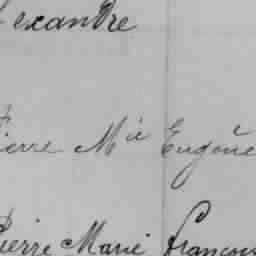 exandre
ierre Mie Eugène
Pierre Marie François